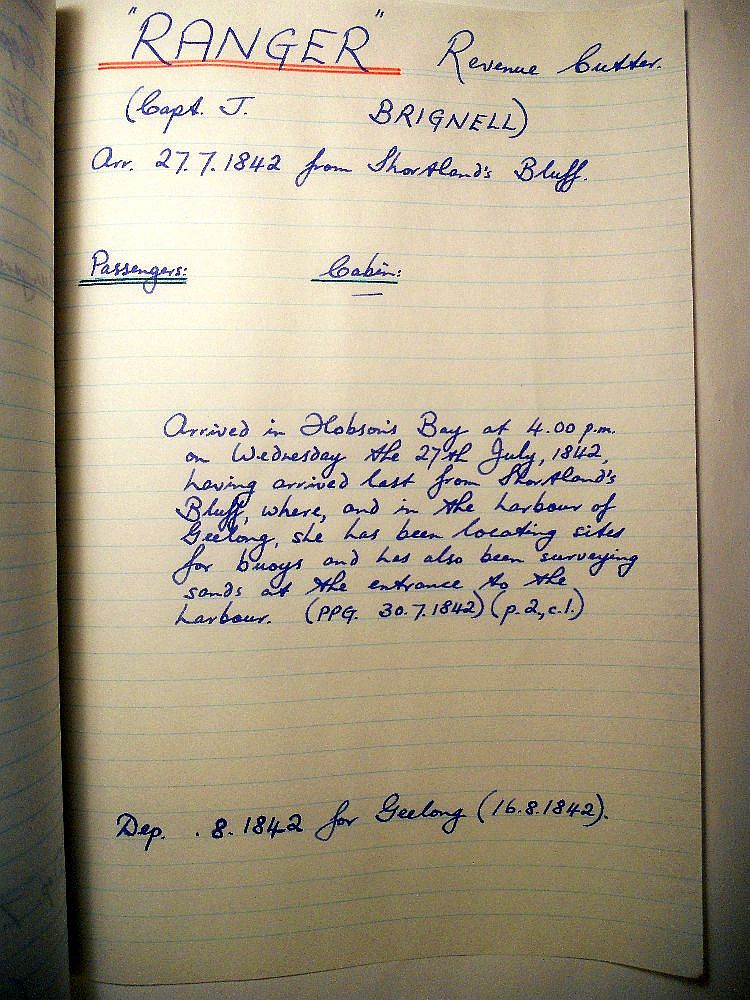 "RANGER" Revenue Cutter.
(Capt. J. BRIGNELL)
Arr. 27.7.1842 from Shortland's Bluff.
Passengers: Cabin:
—
Arrived in Hobson's Bay at 4.00 p.m.
on Wednesday the 27th July, 1842,
having arrived last from Shortland's
Bluff, where, and in the harbour of
Geelong, she has been locating sites
for buoys and has also been surveying
sands at the entrance to the
harbour. (PPG. 30.7.1842) (p.2, c.1.)
Dep. . 8. 1842 for Geelong (16.8.1842).